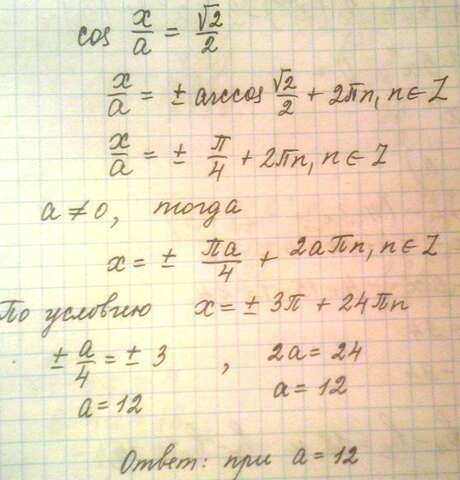 cos x/a = √2/2
x/a = ± arccos √2/2 + 2πn, n ∈ Z
x/a = ± π/4 + 2πn, n ∈ Z
a ≠ 0, тогда
x = ± πa/4 + 2aπn, n ∈ Z
По условию x = ± 3π + 24πn
± a/4 = ± 3 , 2a = 24
a = 12 a = 12
Ответ: при a = 12